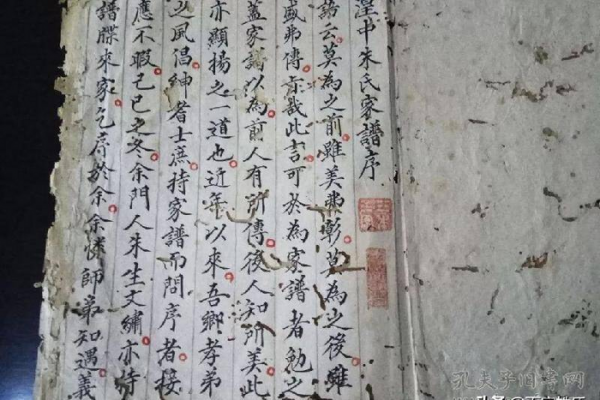 湟中朱氏家譜序
語云莫為之前雖美弗彰莫為之後雖
盛弗傳哉此言可於為家譜者勉之
蓋家譜以為前人有所傳後人知所美此
亦顯揚之一道也近年以來吾鄉孝弟
之風倡紳者士庶持家譜而問序者接
應不暇己巳之冬余門人朱生文繡亦持
譜牒來家乞序於余余師弟知遇義
孔夫子旧书网
头条